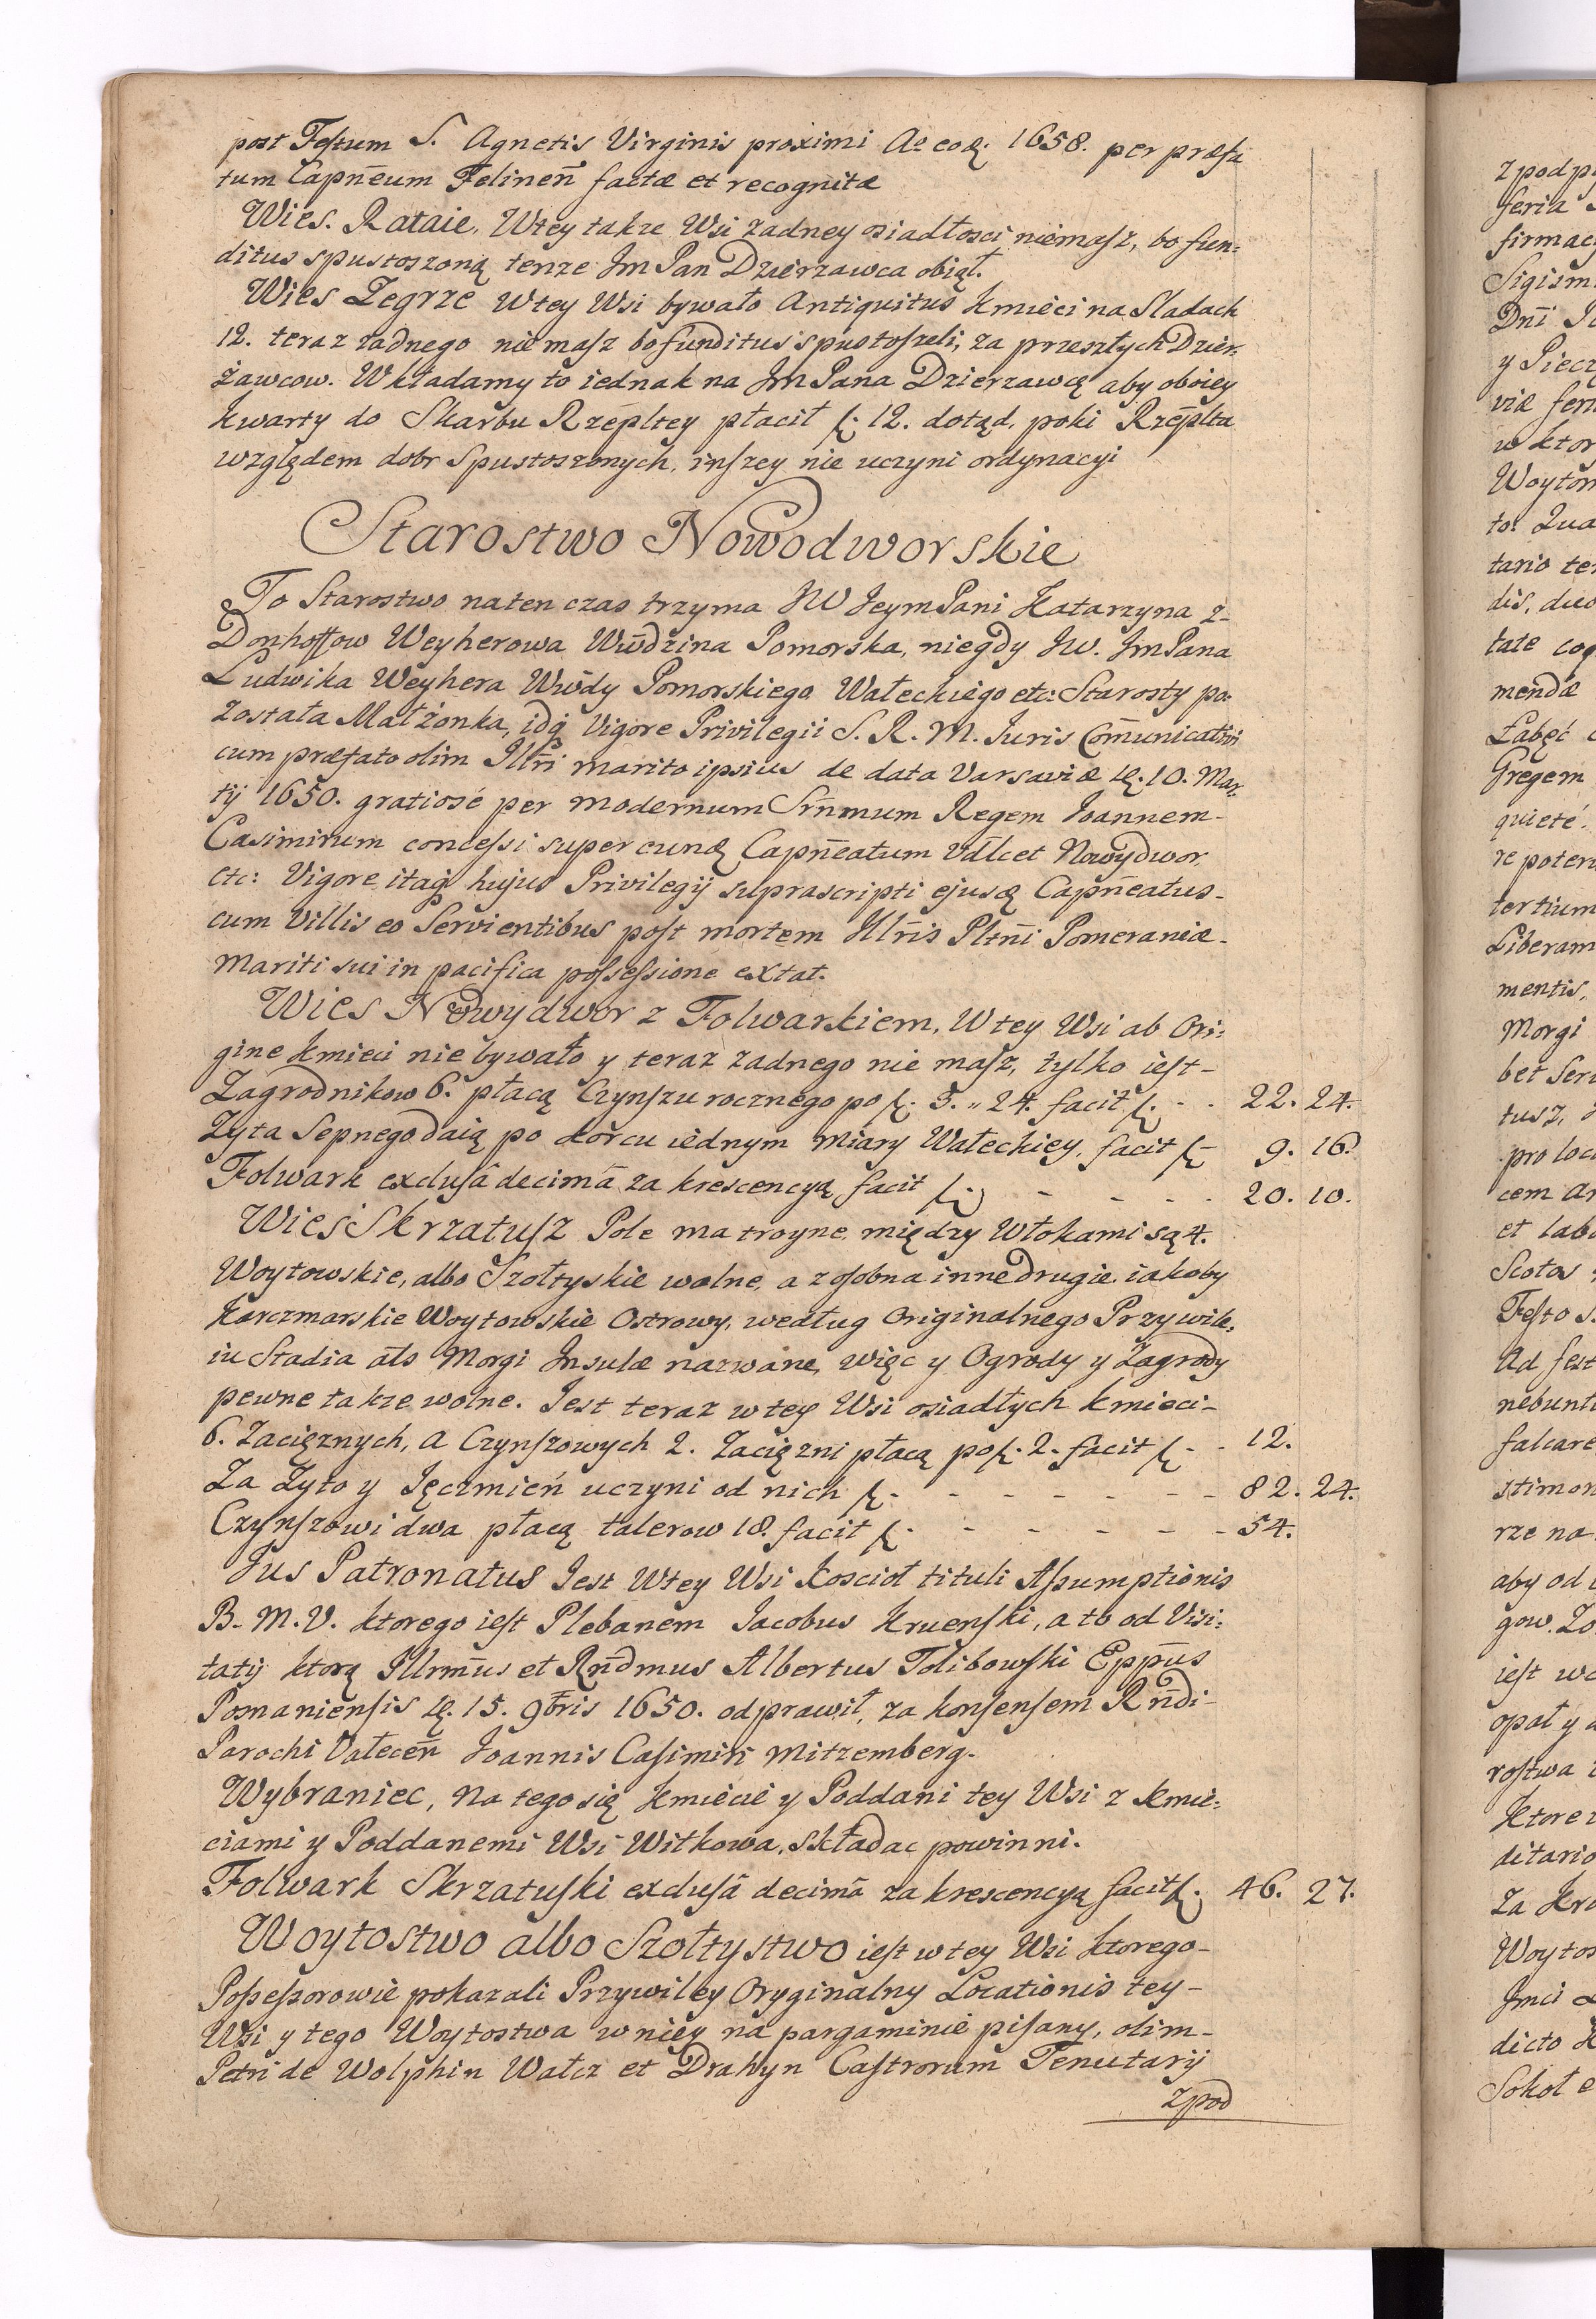 post Festum S. Agnetis Virginis proximi Ao eoą. 1658. per præfa
tum Capnẽum Felinen̄ factæ et recognitæ
Wies. Rataie. Wtey takze Wsi zadney osiadłosci niemasz, bo fun:
ditus spustoszoną tenze Jm Pan Dzierzawca obiął.
Wies Zegrze Wtey Wsi bywało Antiquitus Kmieci na Sladach
12. teraz zadnego nie masz bo funditus spustoszeli, za przeszłych Dzier:
żawcow. Wkładamy to iednak na Jm Pana Dzierzawcą aby oboiey
kwarty do Skarbu Rzẽpltey płacił f. 12. dotąd, poki Rzẽplta
względem dobr Spustoszonych, inszey nie uczyni ordynacyi
Starostwo Nowodworskie
To Starostwo naten czas trzyma JW JeymPani Katarzyna z-
Donhoffow Weyherowa Ww̄dzina Pomorska, niegdy JW. JmPana
Ludwika Weyhera Ww̄dy Pomorskiego Wałeckiego etc: Starosty po:
została Małżonka, idq́ Vigore Privilegii S. R. M. Iuris Com̄unicativi
cum præfato olim Jllr̄i marito ipsius de data Varsaviæ d. 10. Mar:
tij 1650. gratiosé per modernum Sr̄nmum Regem Joannem-
Casimirum concessi super eund Capn̄eatum vdl̄cet Nowydwor
etc: Vigore itaq́ hujus Privilegij suprascripti ejusd Capn̄eatus-
cum Villis eo Servientibus post mortem Jllr̄is Pltn̄i Pomeraniæ-
Mariti sui in pacifica possessione extat.
Wies Nowydwor z Folwarkiem, Wtey Wsi ab Ori:
gine Kmieci nie bywało y teraz zadnego nie masz, tylko iest-
Zagrodnikow 6. płacą Czynszu rocznego po f. 3. „ 24. facit f. - - 22. 24.
Zyta Sepnego daią po korcu iednym miary Wałeckiey, facit f - 9. 16.
Folwark exclusâ decimâ za krescencyą facit f. - - - - - 20. 10.
Wies Skrzatusz Pole ma troyne między Włokami są 4.
Woytowskie, albo Szołtyskie wolne, a zosobna inne drugie iakoby
Karczmarskie Woytowskie Ostrowy, według Originalnego Przywile:
iu Stadia als Morgi Insulæ nazwane, więc y Ogrody y Zagrody
pewne takze wolne. Jest teraz wtey Wsi osiadłych Kmieci-
6. Zaciężnych, a Czynszowych 2. Zaciężni płacą po f. 2. facit f - - 12.
Za Zyto y Jęczmień uczyni od nich f - - - - - - - 82. 24.
Czynszowi dwa płacą talerow 18. facit f. - - - - - - 54.
Jus Patronatus Jest Wtey Wsi Kosciot tituli Assumptionis
B. M. V. ktorego iest Plebanem Jacobus Kruenski, a to od Visi:
taty ktorą Jllrm̄us et Rn̄dmus Albertus Tolibowski Epp̄us
Posnaniensis d. 15. 9bris 1650. odprawił, za konsensem Rn̄di-
Parochi Vałecen̄ Joannis Casimiri Mitzemberg.
Wybraniec, Na tego się Kmiecie y Poddani tey Wsi z Kmie:
ciami y Poddanemi Wsi Witkowa, składac powinni.
Folwark Skrzatuski exclusâ decimâ za krescencyą facit f. 46. 27.
Woytostwo albo Szołtystwo iest wtey Wsi ktorego-
Possessorowie pokazali Przywiley Oryginalny Locationis tey-
Wsi y tego Woytostwa wniey na pargaminie pisany, olim-
Petri de Wolphin Wałcz et Drahyn Castrorum Tenutarij
zpod